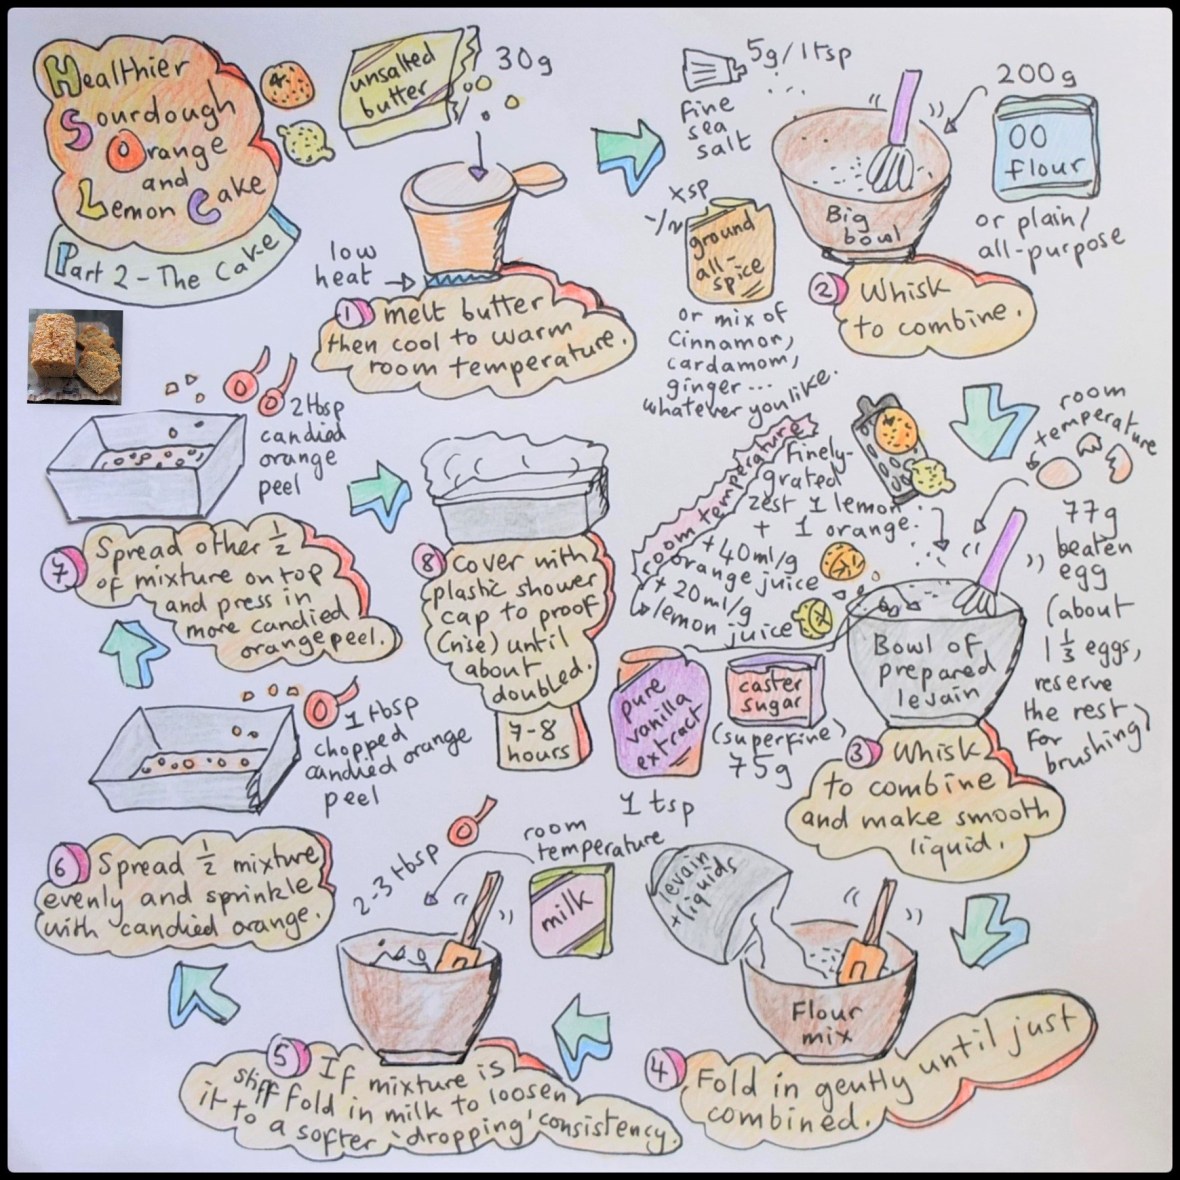 Healthier
Sourdough
Orange
and
Lemon Cake
Part 2 - The Cake
unsalted
butter
30g
low
heat
1 melt butter
then cool to warm
room temperature.
5g/1tsp
fine
sea
salt
1/2
ground
all-
spice
or mix of
cinnamon,
cardamom,
ginger...
whatever you like.
Big
bowl
200g
00
flour
or plain/
all-purpose
2 Whisk
to combine.
room
temperature
77g
beaten
egg
(about
1 1/3 eggs,
reserve
the rest
for
brushing)
room temperature
finely-
grated
zest 1 lemon
+ 1 orange.
+ 40ml/g
orange juice
+ 20ml/g
lemon juice
pure
vanilla
extract
1 tsp
caster
sugar
(superfine)
75g
Bowl of
prepared
levain
3 Whisk
to combine
and make smooth
liquid.
levain
+ liquids
Flour
mix
4 Fold in gently until just
combined.
2-3 tbsp
room
temperature
milk
5 If mixture is
stiff fold in milk to loosen
it to a softer 'dropping' consistency.
6 Spread 1/2 mixture
evenly and sprinkle
with candied orange.
1 tbsp
chopped
candied orange
peel
2 tbsp
candied
orange
peel
7 Spread other 1/2
of mixture on top
and press in
more candied
orange peel.
8 Cover with
plastic shower
cap to proof
(rise) until
about
doubled.
7-8
hours